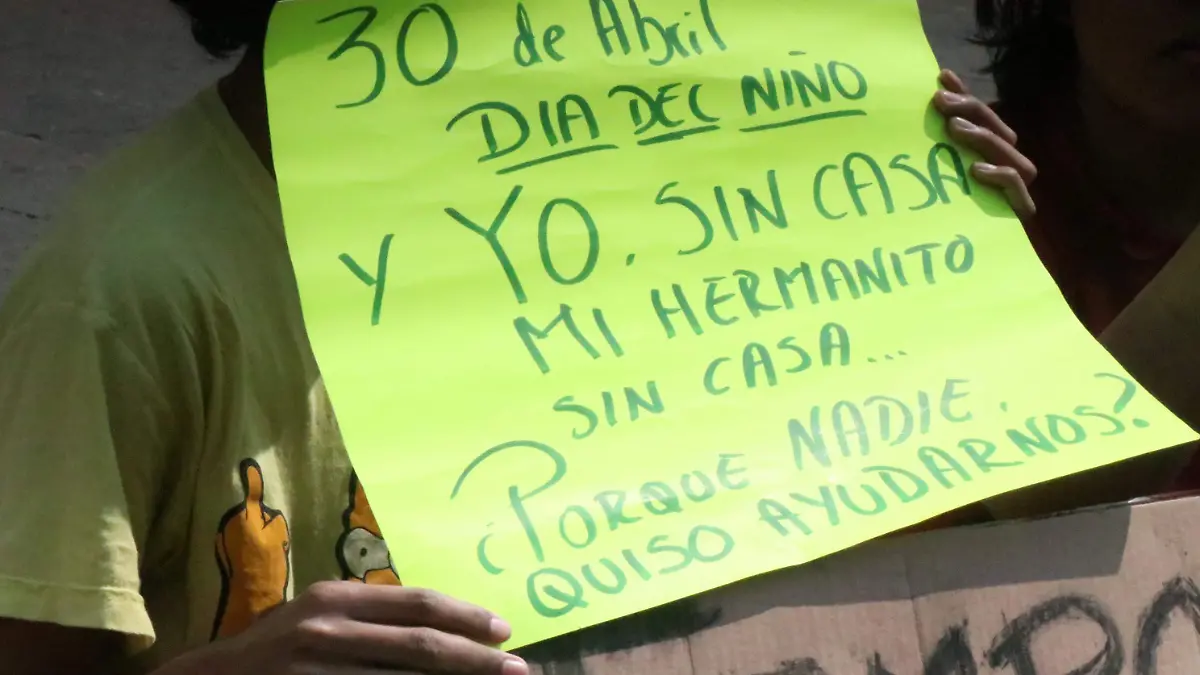 30 de Abril
DIA DEL NIÑO
Y YO. SIN CASA
MI HERMANITO
SIN CASA...
¿PORQUE NADIE.
QUISO AYUDARNOS?